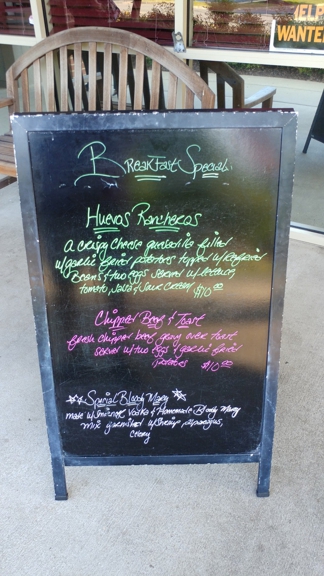 HELP
WANTED
BreakFast Specials
Huevos Rancheros
A crispy cheese quesadilla filled
w/garlic fried potatoes topped w/Refried
Beans & two eggs served w/lettuce,
tomato, salsa & sour cream $10.00
Chipped Beef & Toast
fresh chipped beef gravy over toast
served w/two eggs & garlic fried
potatoes $10.00
Special Bloody Mary
made w/Smirnoff Vodka & Homemade Bloody Mary
mix garnished w/shrimp, asparagus,
celery